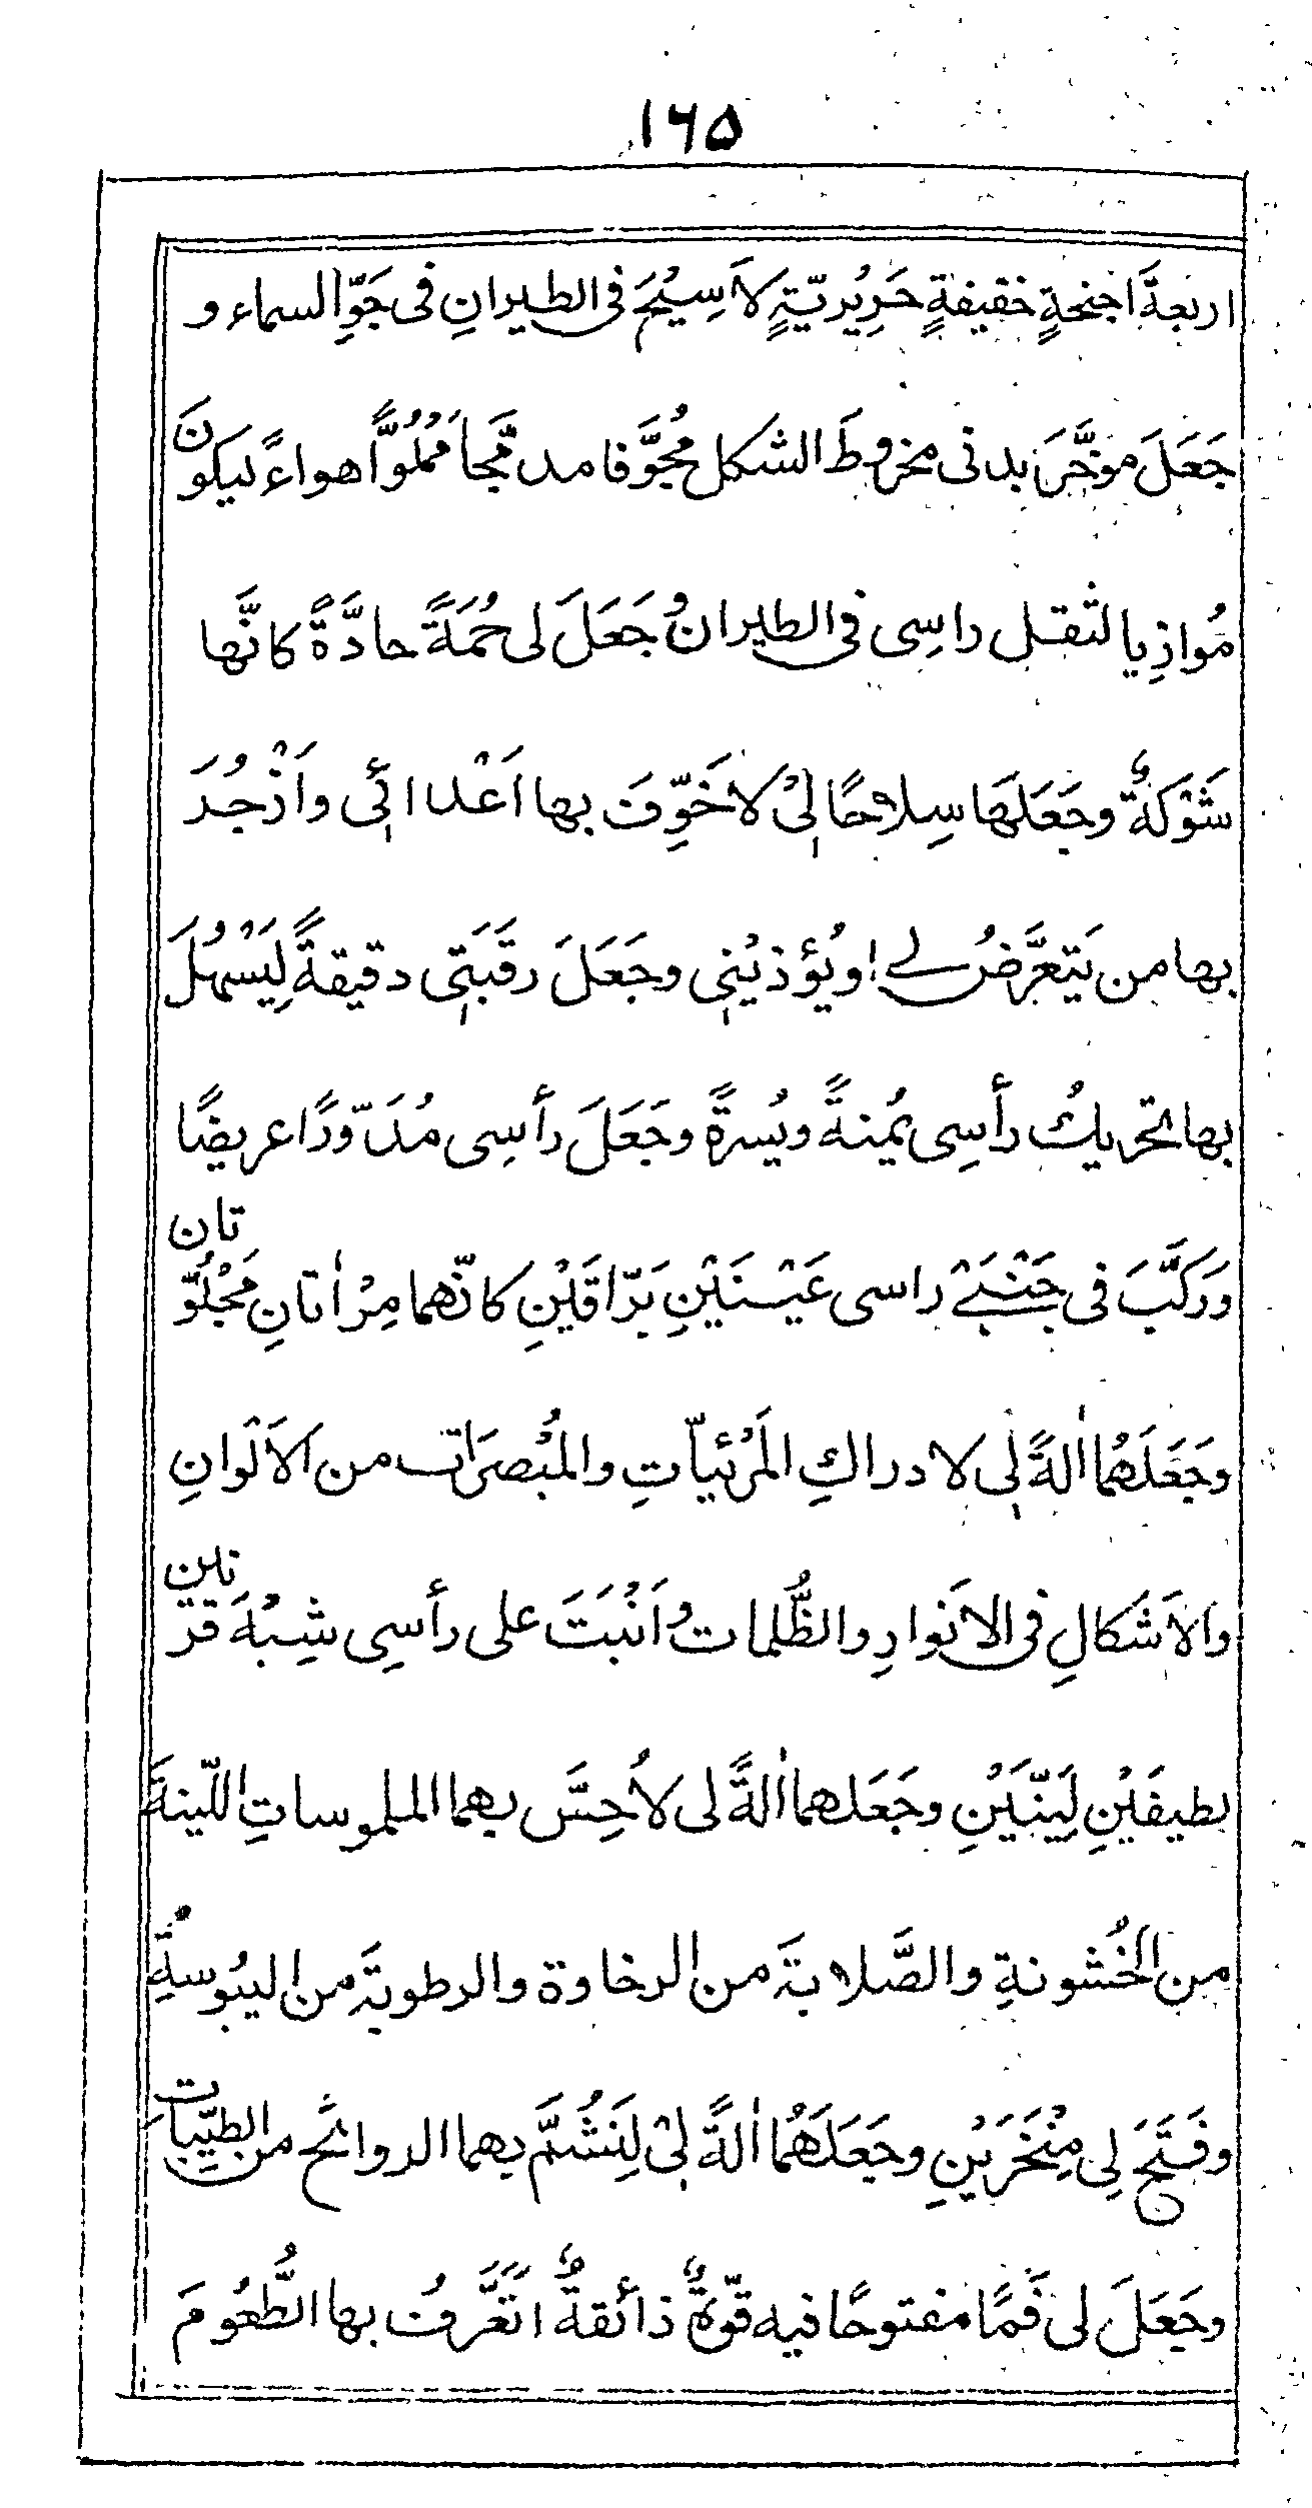 ۱۶۵
اربعةَ اجنحةٍ خفيفةٍ حَرِيُريّةٍ لاَسِيُحَ فى الطيرانِ فى جَوِّ السماء و
جَعَلَ موخَّرَ بدنى مخروطَ الشكل مُجوَّفا مدمَّجاً مُمْلُوًّا هواءً ليكونَ
مُوازِيا لثقل راسِى فى الطيران وُجَعَلَ لى حُمَةً حادَّةً كانَّها
شَوْكَةٌ وجَعَلَهَا سِلاحًا لِىْ لاُخَوِّفَ بها اَعْدائِى واَزْجُرَ
بها من يَتعرَّضُ لے او يُؤذيُنِى وجَعَلَ رقَبَتِى دقيقةً لِيَسْهُلَ
بها تحريكُ رأسِى يُمنةً ويُسرةً وجَعَلَ رأسِى مُدَوّرًا عريضًا
ورَكَّبَ فى جَنْبَے راسى عَيْنَيْنِ بَرّاقَيْنِ كانّهما مِرْاٰتانِ مَجْلُوّتان
وجَعَلَهُما اٰلةً لِى لادراكِ المَرْئيّاتِ والمُبْصرَات من الاَلْوَانِ
والاَشكالِ فى الانَوارِ والظُّلمات وُاَنْبَتَ على رأسِى شِبْهَ قرنين
لطيفَيْنِ لَيّنَيْنِ وجَعَلهما اٰلةً لى لاُحِسَّ بهما الملموساتِ اللّينةَ
من الخُشونةِ والصَّلابةَ من الرخاوة والرطوبةَ من اليبُوسةِ
وفَتَحَ لِى مِنْخَرَيْنِ وجَعَلَهُما اٰلةً لِىْ لِنَشُمَّ بهما الروائح من الطيّبات
وجَعَلَ لى فَمًا مفتوحًا فيه قوّةٌ ذائقةٌ اتَعَرَّفُ بها الطُّعُومَ